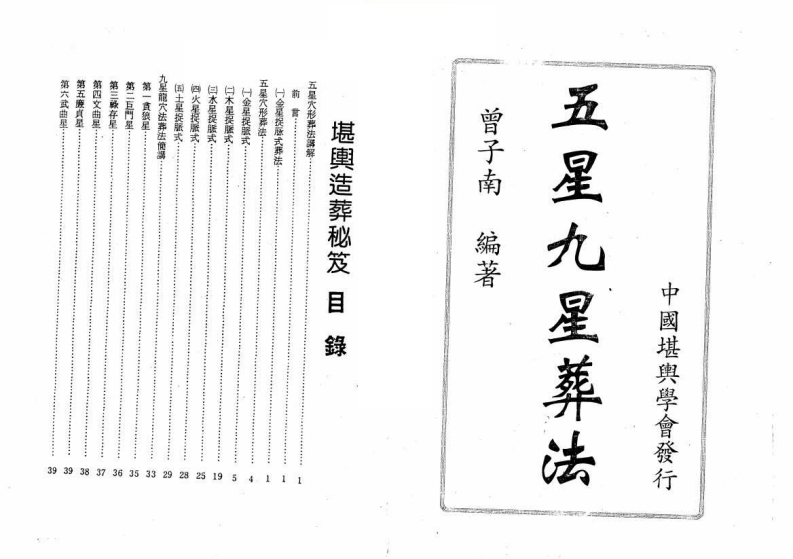 中國堪輿學會發行
五星九星葬法
曾子南 編著
堪輿造葬秘笈 目錄
五星穴形葬法講解……1
前言……1
㈠金星捉脈式葬法……1
五星穴形葬法……4
㈠金星捉脈式……5
㈡木星捉脈式……19
㈢水星捉脈式……25
㈣火星捉脈式……28
㈤土星捉脈式……29
九星龍穴法葬法簡講……33
第一貪狼星……35
第二巨門星……36
第三祿存星……37
第四文曲星……38
第五廉貞星……39
第六武曲星……39